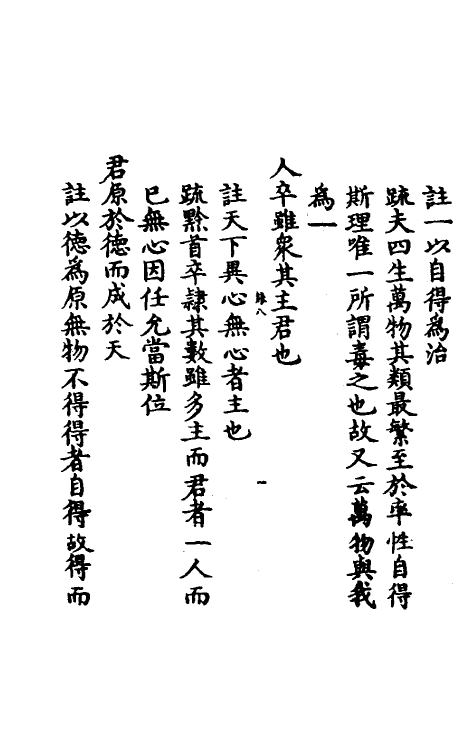 註一以自得為治
疏夫四生萬物其類最繁至於率性自得
斯理唯一所謂毒之也故又云萬物與我
為一
人卒雖衆其主君也
註天下異心無心者主也
疏黔首卒隷其數雖多主而君者一人而
已無心因任允當斯位
君原於德而成於天
註以德為原無物不得得者自得故得而